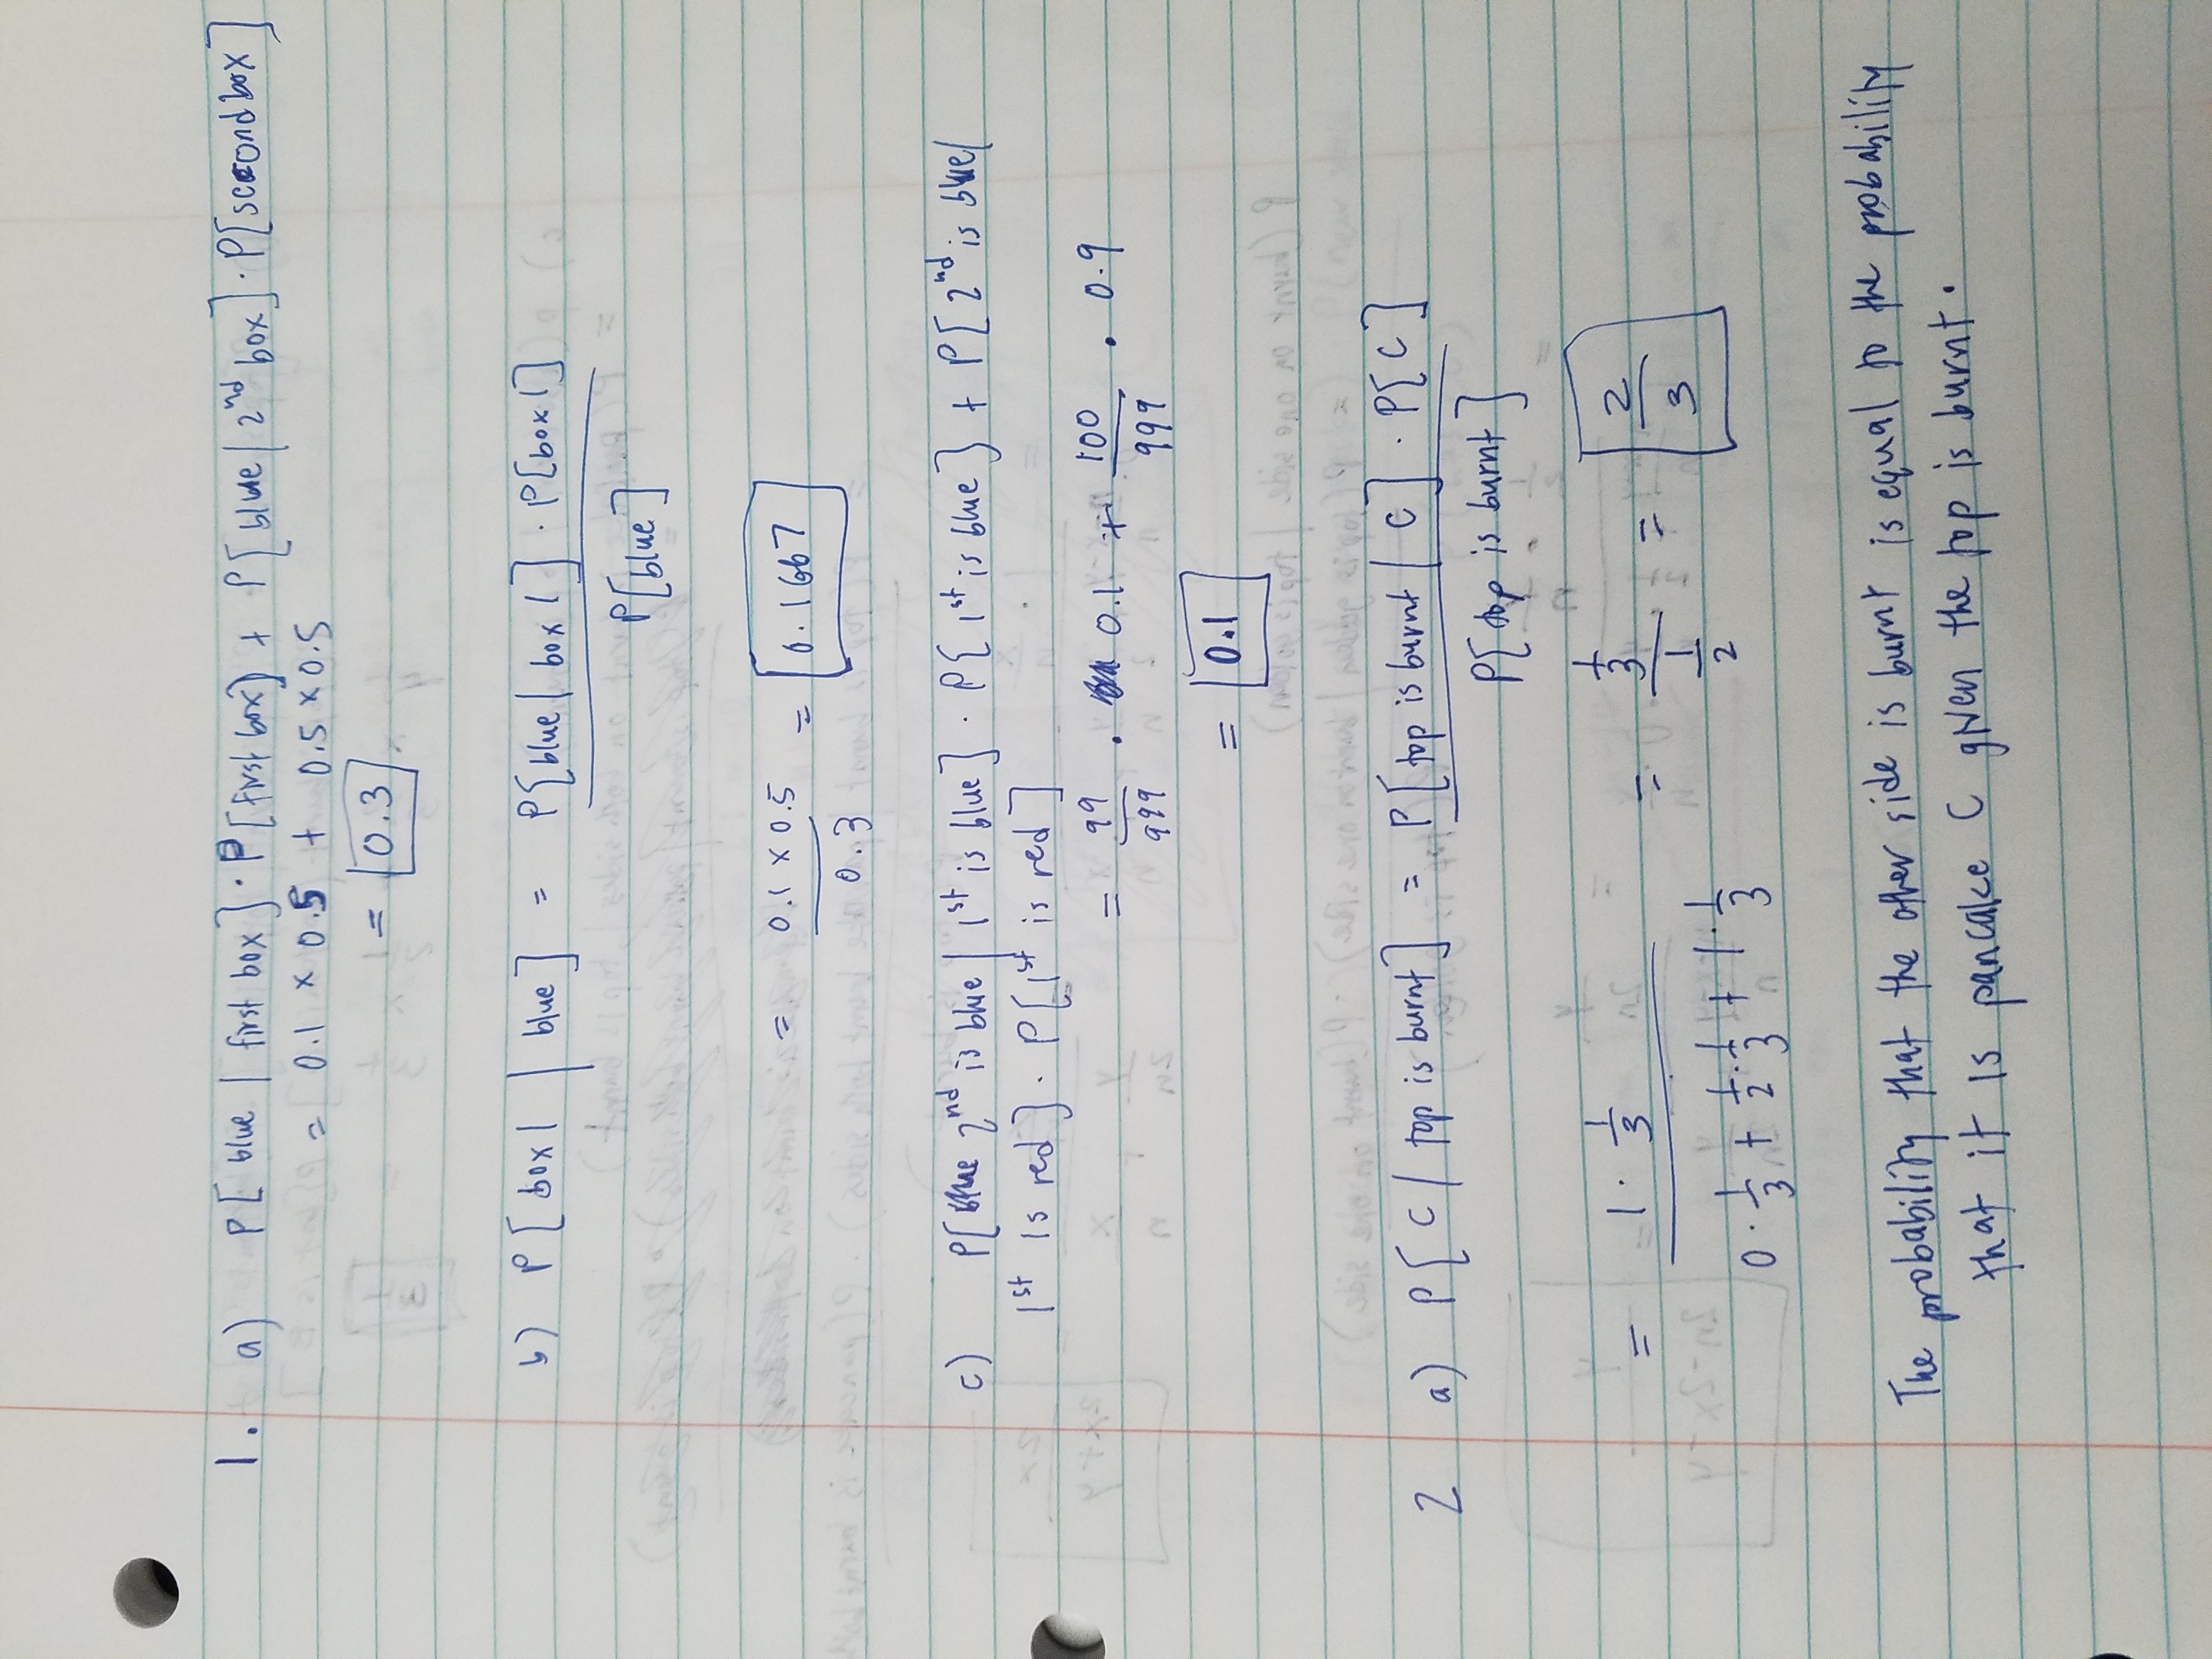 1. a) P[ blue | first box ] · P[first box] + P[ blue | 2nd box ] · P[second box]
= 0.1 × 0.5 + 0.5 × 0.5
= 0.3
b) P[ box 1 | blue ] = P[ blue | box 1 ] · P[box 1]
P[blue]
= 0.1 × 0.5 = 0.1667
0.3
c) P[ 2nd is blue | 1st is blue ] · P[ 1st is blue ] + P[ 2nd is blue |
1st is red ] · P[ 1st is red ]
= 99/999 · 0.1 + 100/999 · 0.9
= 0.1
2 a) P[ C | top is burnt ] = P[ top is burnt | C ] · P[ C ]
P[ top is burnt ]
= 1 · 1/3 = 1/3 = 2/3
0 · 1/3 + 1/2 · 1/3 + 1 · 1/3 1/2
The probability that the other side is burnt is equal to the probability
that it is pancake C given the top is burnt.